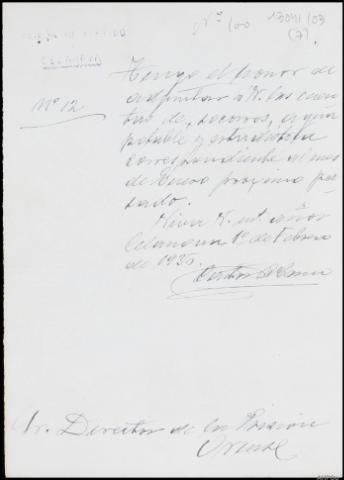 Nº 100
13041/03
(7)
Nº 12
Tengo el honor de
adjuntar a V. las cuen-
tas de, socorros, agua
potable y estadística
correspondiente al mes
de Enero proximo pa-
sado.
Viva V. m. años
Celanova 1º de Febrero
de 1935.
Sr. Director de la Prisión
Orense